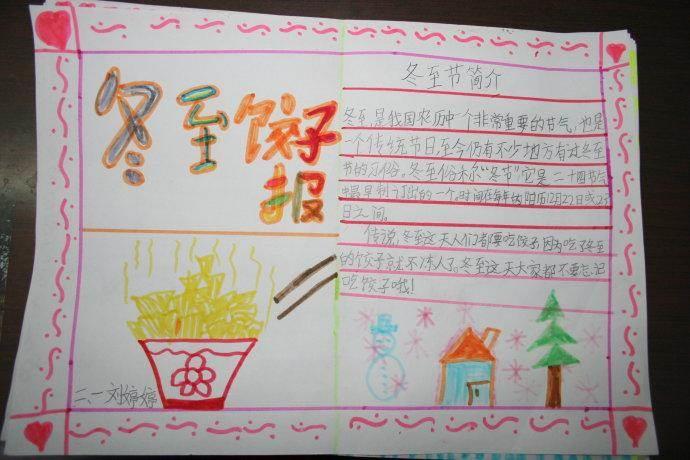 冬至饺子
报
二、一刘婷婷
冬至节简介
冬至,是我国农历中一个非常重要的节气,也是
一个传统节日,至今仍有不少地方有过冬至
节的习俗。冬至俗称“冬节”它是二十四节气
中最早制订出的一个。时间在每年的阳历12月22日或23
日之间。
传说,冬至这天人们都要吃饺子,因为吃了冬至
的饺子就不冻人了。冬至这天大家都不要忘记
吃饺子哦!